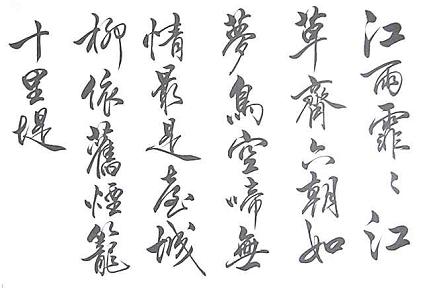 江雨霏〻江
草齊六朝如
夢鳥空啼無
情最是臺城
柳依舊煙籠
十里堤